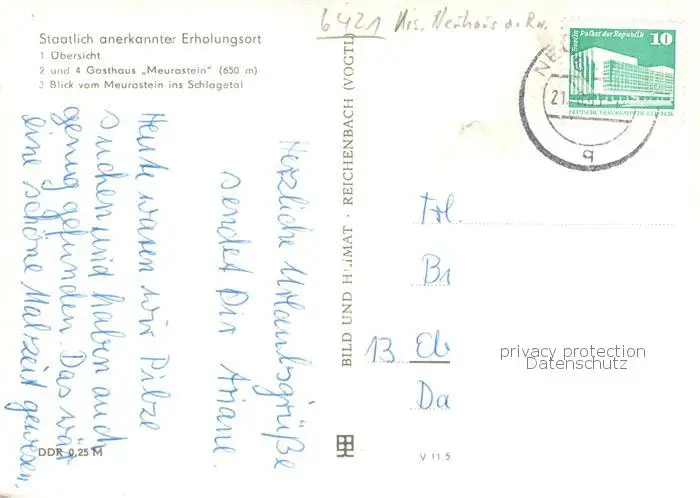 6421 Krs. Neuhaus a. Rw.
Staatlich anerkannter Erholungsort
1 Übersicht
2 und 4 Gasthaus „Meurastein" (650 m)
3 Blick vom Meurastein ins Schlagetal
Berlin Palast der Republik
10
DEUTSCHE DEMOKRATISCHE REPUBLIK
NE
21
q
Herzliche Urlaubsgrüße
sendet Dir Ariane.
Heute waren wir Pilze
suchen und haben auch
genug gefunden. Das wär
eine schöne Malzeit gewesen.
BILD UND HEIMAT · REICHENBACH (VOGTL)
Frl.
Br
13 Eb
Da
privacy protection
Datenschutz
DDR 0,25 M
V 11 5